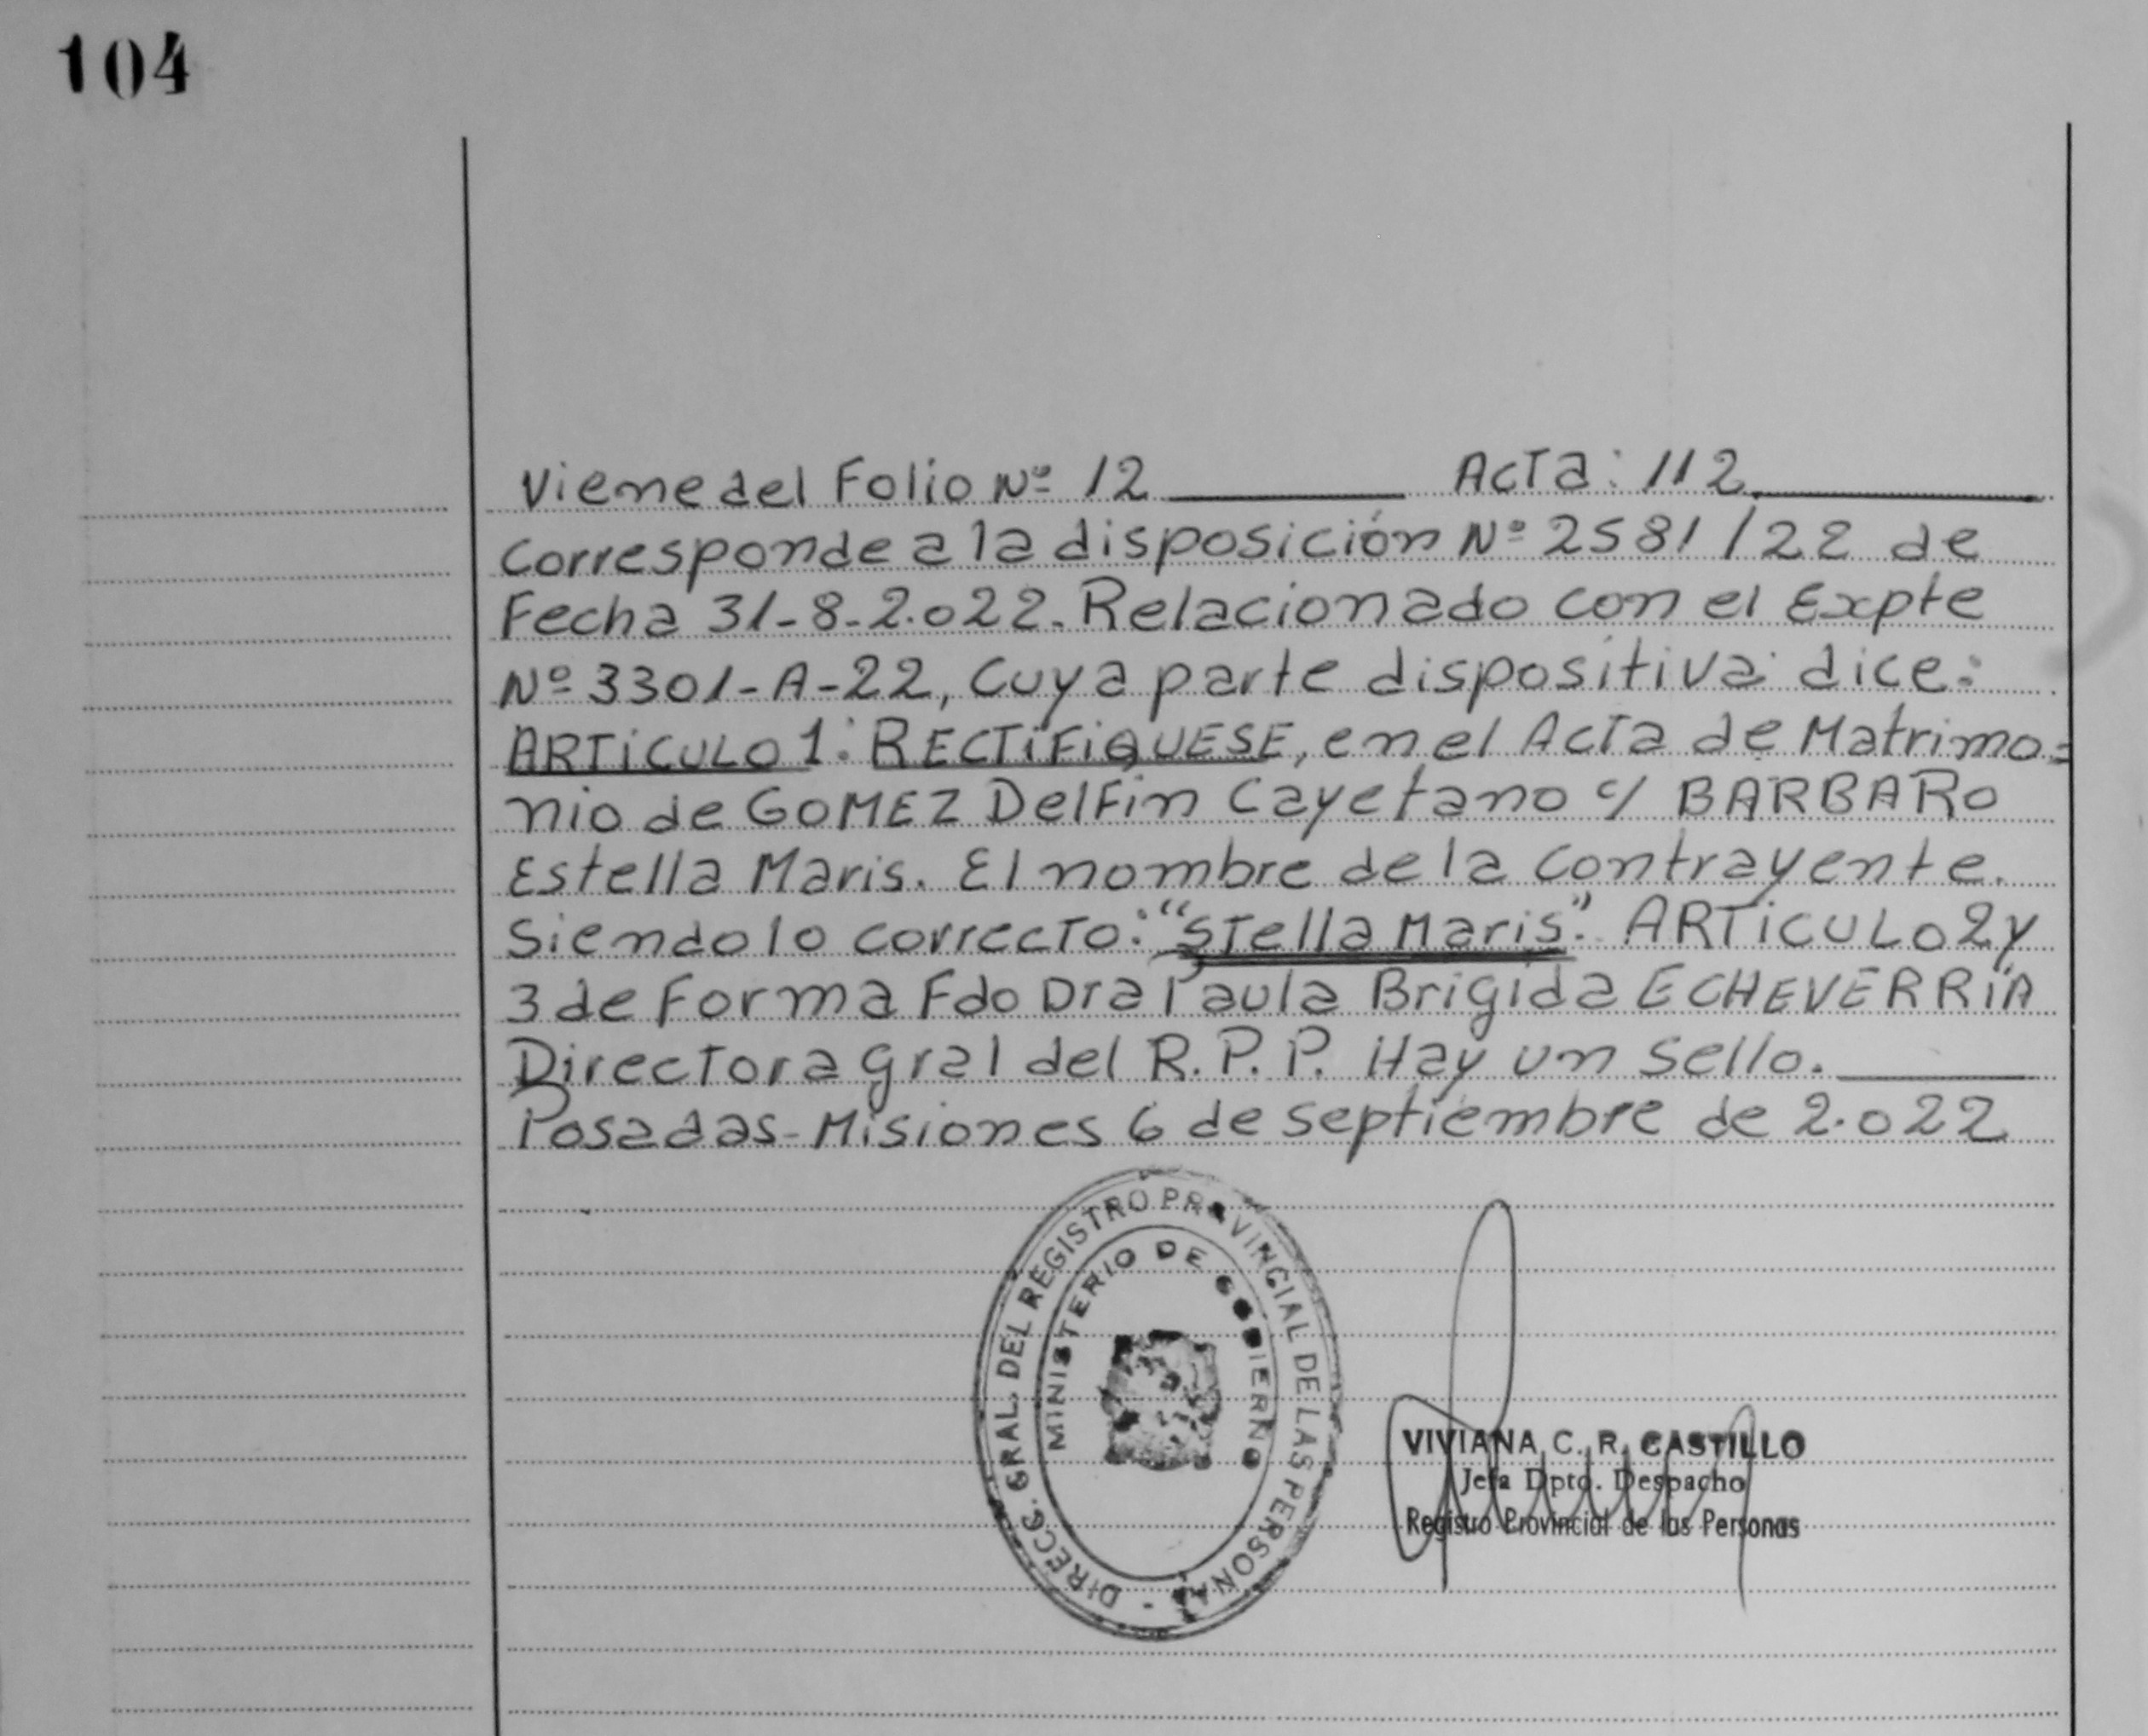 104
Viene del Folio Nº 12 Acta: 112
Corresponde a la disposición Nº 2581/22 de
Fecha 31-8-2.022. Relacionado con el Expte
Nº 3301-A-22, Cuya parte dispositiva dice:
ARTICULO 1: RECTIFIQUESE, en el Acta de Matrimo=
nio de GOMEZ Delfin Cayetano c/ BARBARO
Estella Maris. El nombre de la contrayente.
Siendo lo correcto: "Stella Maris". ARTICULO 2 y
3 de Forma Fdo Dra Paula Brigida ECHEVERRIA
Directora gral del R.P.P. Hay un Sello.
Posadas-Misiones 6 de septiembre de 2.022
DIRECC. GRAL. DEL REGISTRO PROVINCIAL DE LAS PERSONAS -
MINISTERIO DE GOBIERNO
VIVIANA C. R. CASTILLO
Jefa Dpto. Despacho
Registro Provincial de las Personas